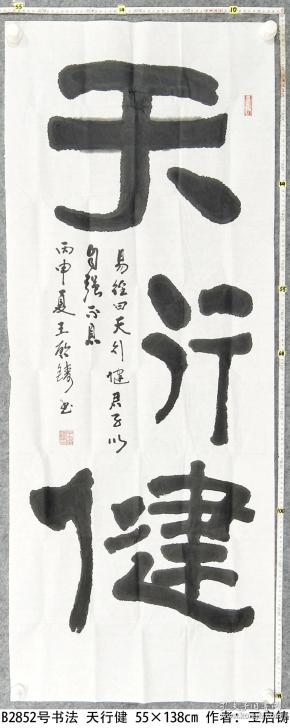 天行健
易经曰天行健君子以
自强不息
丙申夏王启铸书
B2852号书法 天行健 55×138cm 作者：王启铸